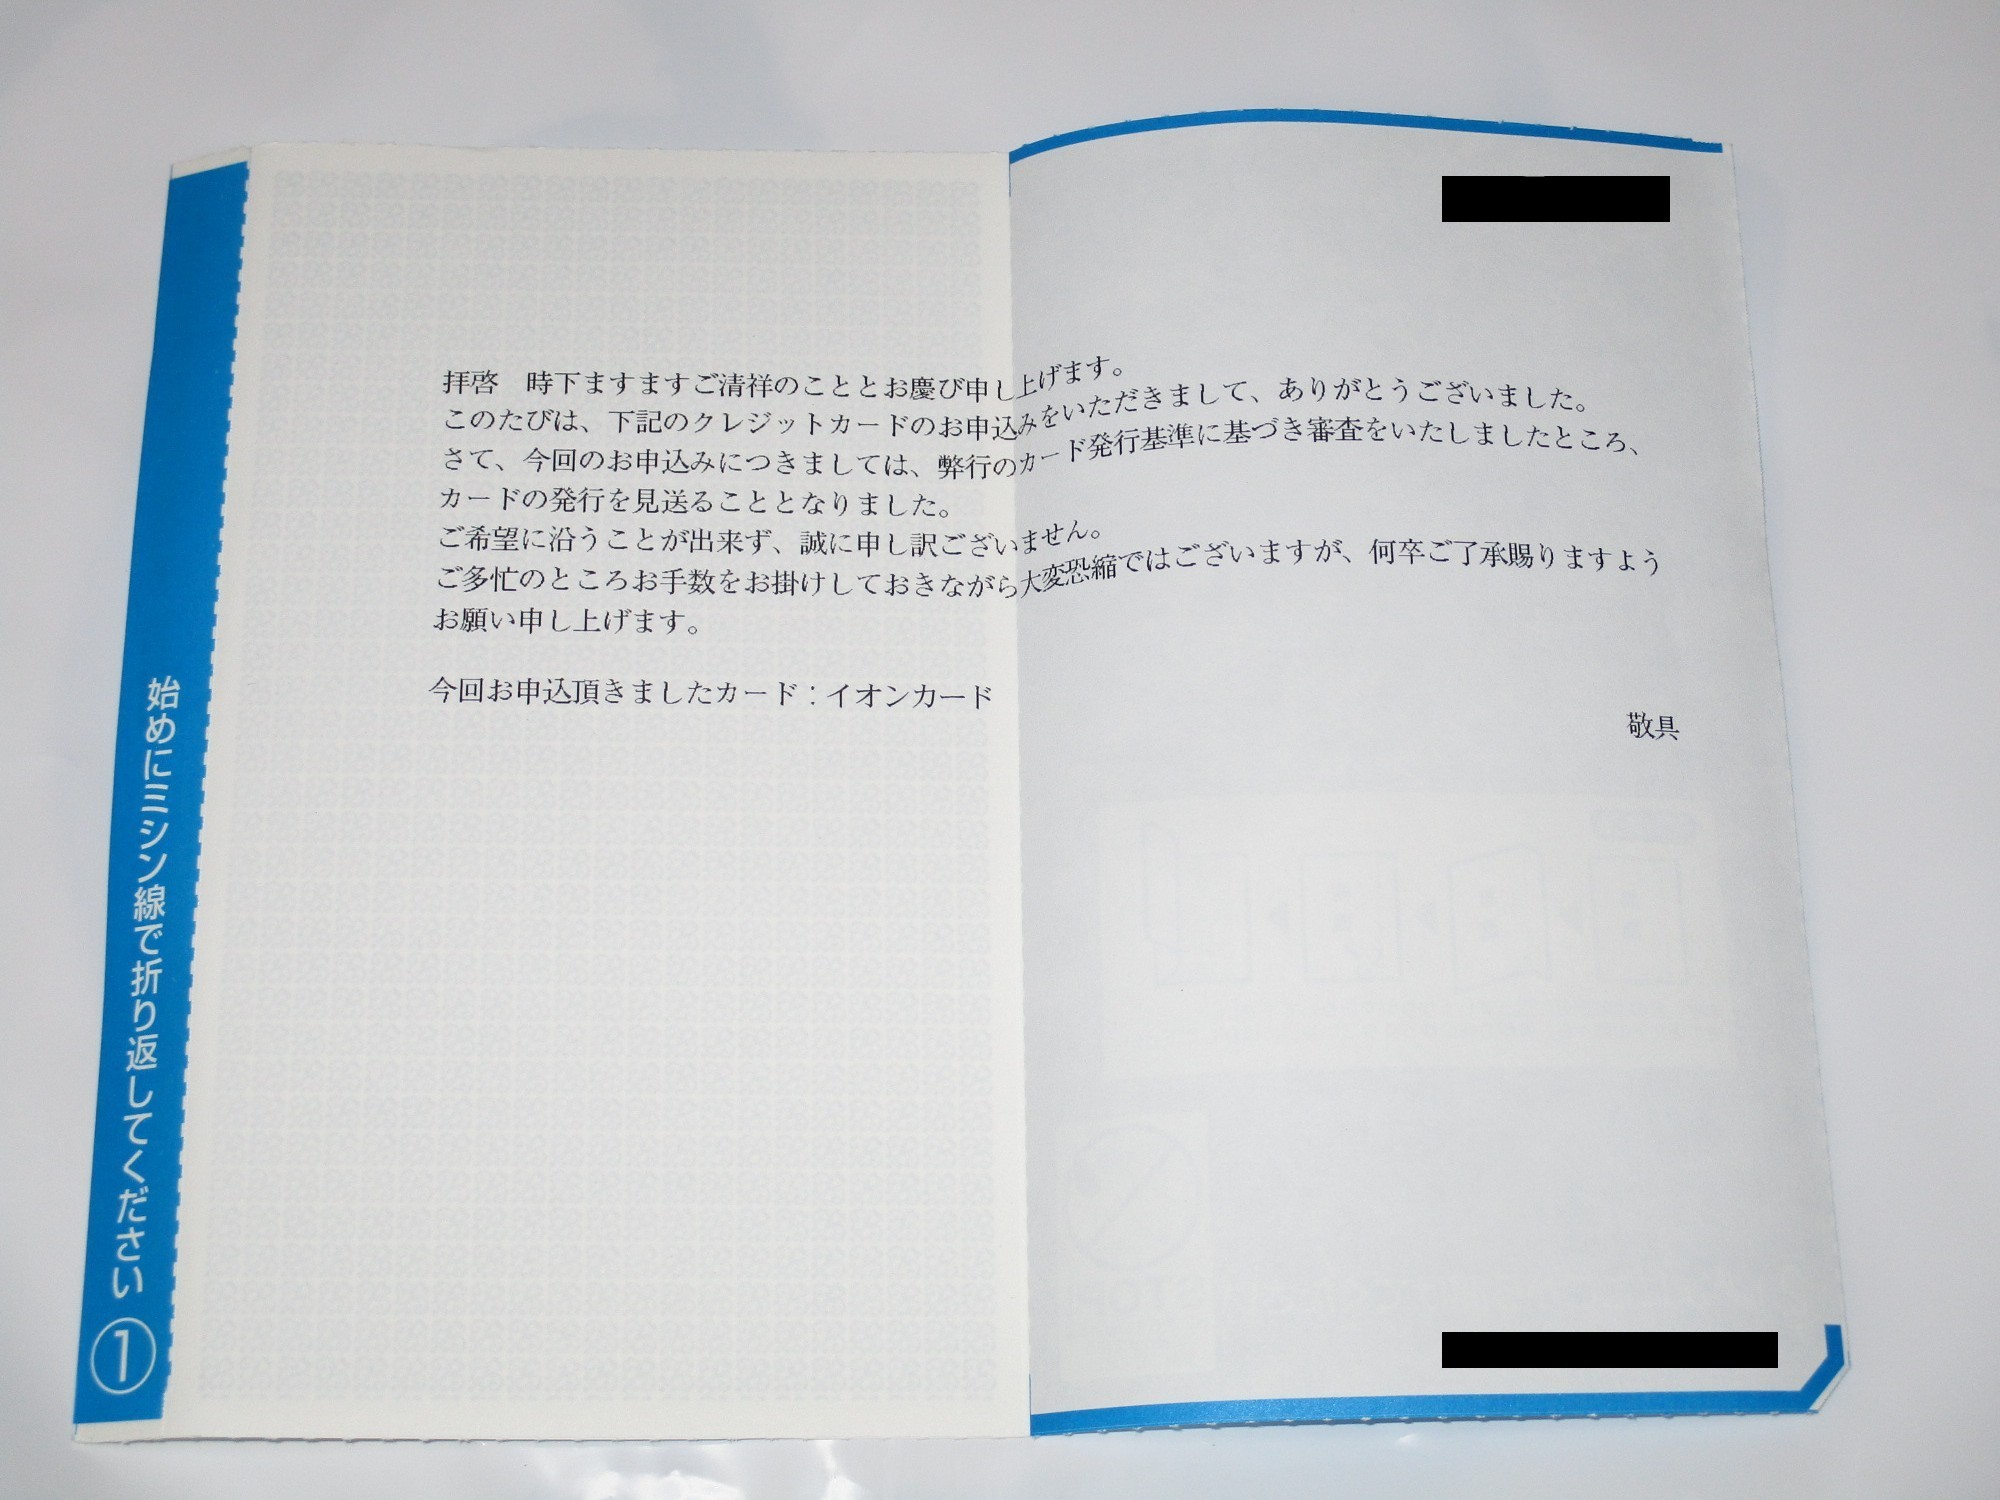 拝啓　時下ますますご清祥のこととお慶び申し上げます。
このたびは、下記のクレジットカードのお申込みをいただきまして、ありがとうございました。
さて、今回のお申込みにつきましては、弊行のカード発行基準に基づき審査をいたしましたところ、
カードの発行を見送ることとなりました。
ご希望に沿うことが出来ず、誠に申し訳ございません。
ご多忙のところお手数をお掛けしておきながら大変恐縮ではございますが、何卒ご了承賜りますよう
お願い申し上げます。
今回お申込頂きましたカード：イオンカード
敬具
始めにミシン線で折り返してください ①